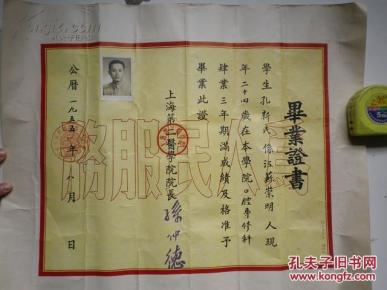 畢業證書
學生孔新民係江蘇崇明人現
年二十四歲在本學院口腔專修科
肄業三年期滿成績及格准予
畢業此證
上海第二醫學院院長孫仲德
公曆一九五五年八月 日
務服民人為
孔夫子旧书网